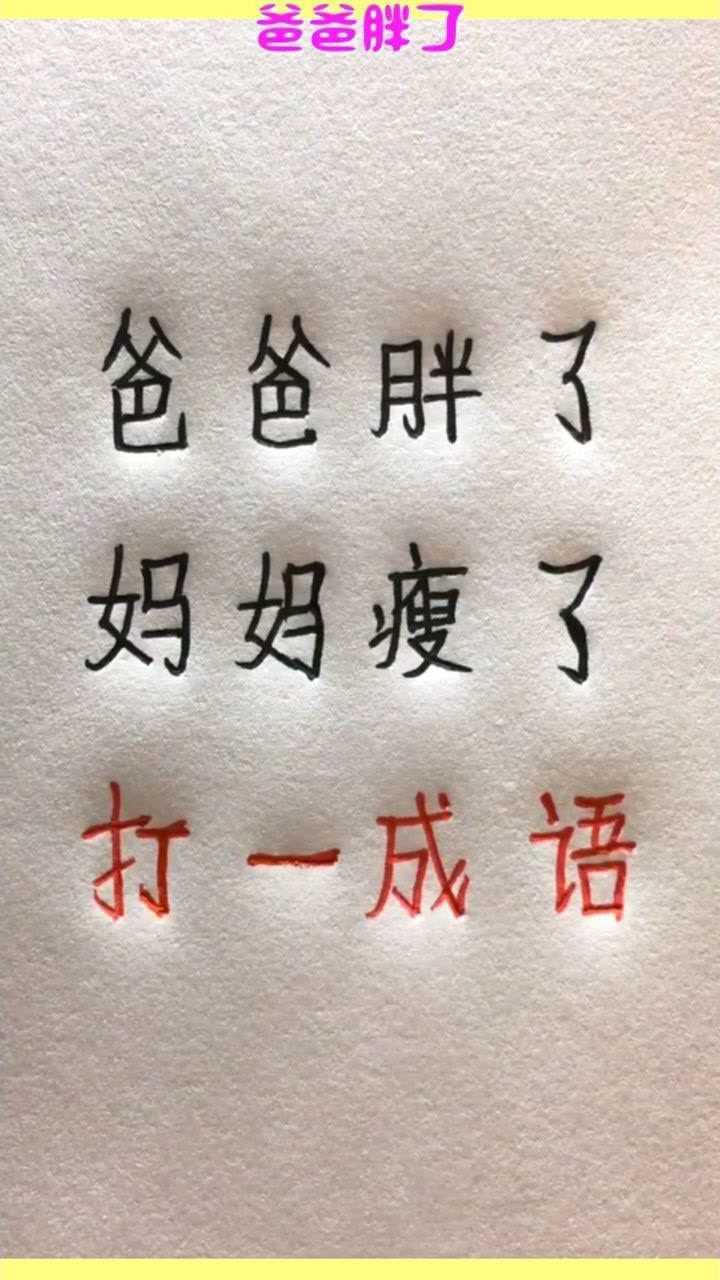 爸爸胖了
爸爸胖了
妈妈瘦了
打一成语